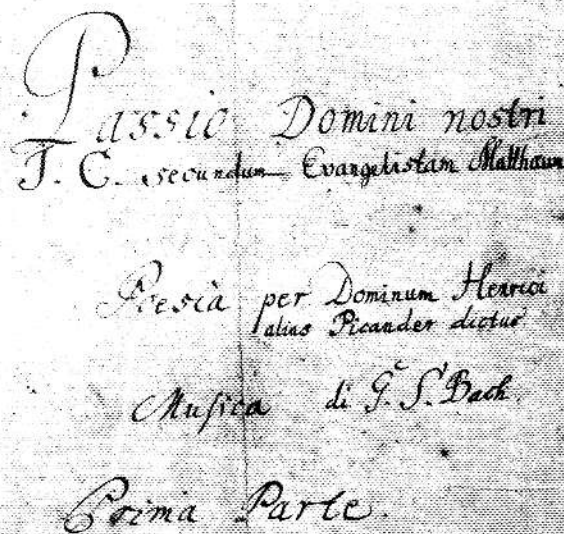 Passio Domini nostri
J. C. secundum Evangelistam Matthæum
Poesia per Dominum Henrici
alias Picander dictus
Musica di G. S. Bach.
Prima Parte.